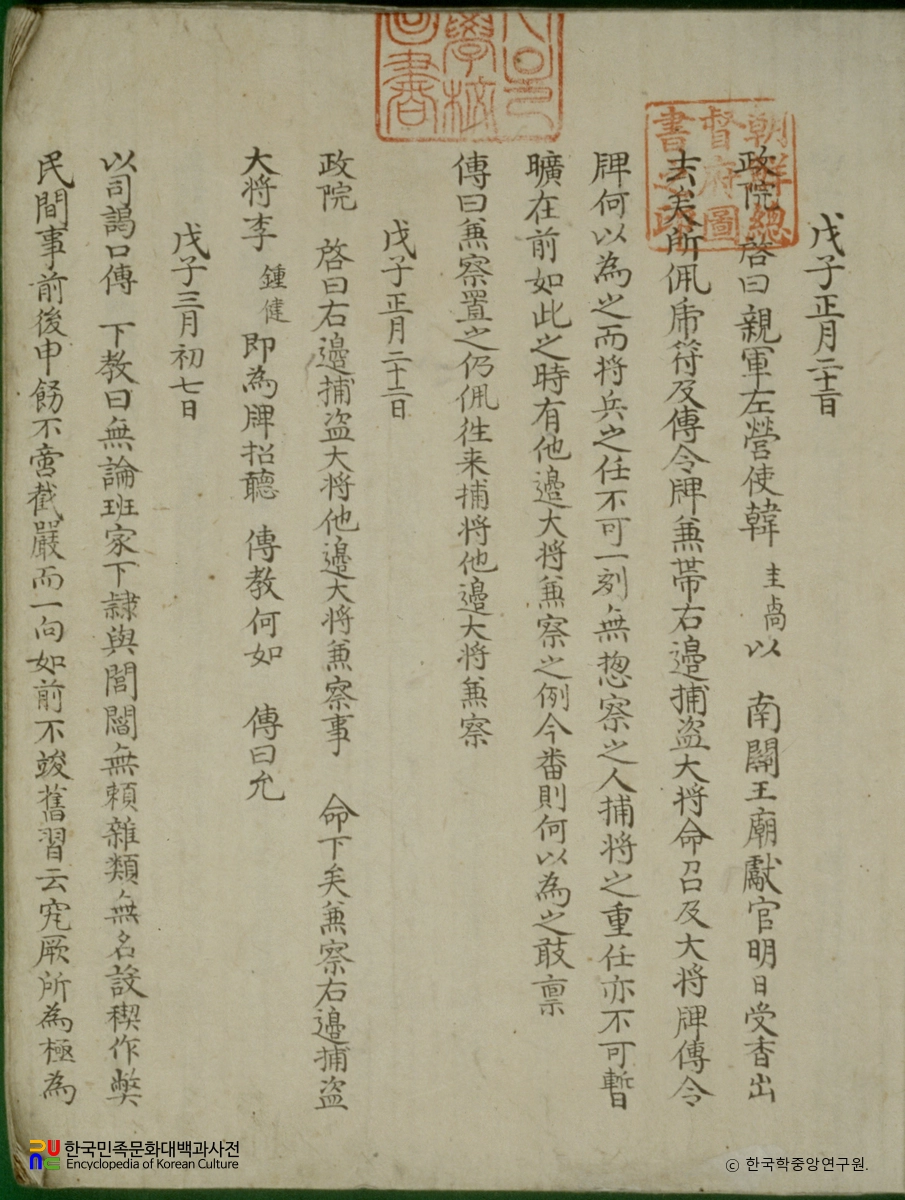 戊子正月二十二日
政院 啓曰親軍左營使韓 圭卨 以 南關王廟獻官明日受香出
去矣所佩虎符及傳令牌兼帶右邊捕盜大將命召及大將牌傳令
牌何以為之而將兵之任不可一刻無摠察之人捕將之重任亦不可暫
曠在前如此之時有他邊大將兼察之例今番則何以為之敢稟
傳曰兼察置之仍佩往来捕將他邊大將兼察
戊子正月二十二日
政院 啓曰右邊捕盜大將他邊大將兼察事 命下矣兼察右邊捕盜
大将李 鍾健 即為牌招聽 傳教何如 傳曰允
戊子三月初七日
以司謁口傳 下教曰無論班家下隷與閭閻無賴雜類無名設稧作弊
民間事前後申飭不啻截嚴而一向如前不竣舊習云究厥所為極為
朝鮮總督府圖書之印
學校圖書
한국민족문화대백과사전
Encyclopedia of Korean Culture
ⓒ 한국학중앙연구원.